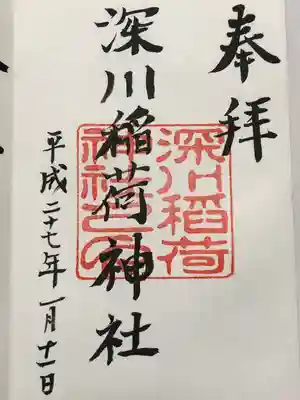 奉拝
深川稲荷神社
深川稲荷
神社之印
平成二十七年一月十一日